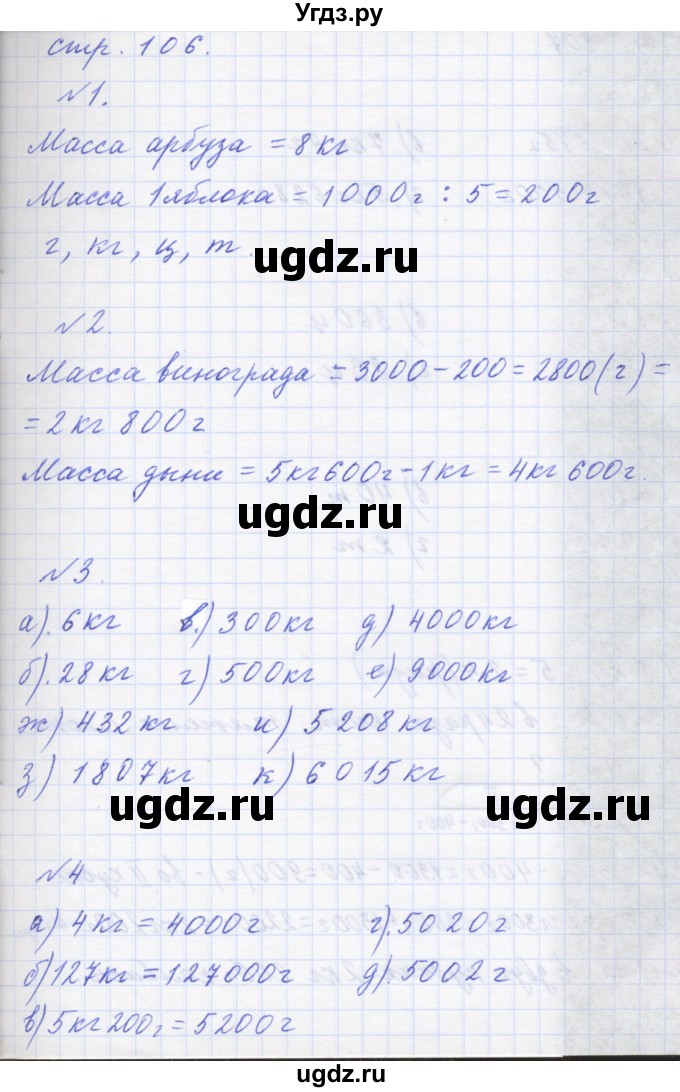 Угдз.ру
стр. 106.
№1.
Масса арбуза = 8 кг
Масса 1 яблока = 1000 г : 5 = 200 г
г, кг, ц, т.
ugdz.ru
№2.
Масса винограда = 3000 - 200 = 2800 (г) =
= 2 кг 800 г
Масса дыни = 5 кг 600 г - 1 кг = 4 кг 600 г.
ugdz.ru
№3.
а). 6 кг в.) 300 кг д) 4000 кг
б). 28 кг г) 500 кг е) 9000 кг
ж) 432 кг и) 5 208 кг
з) 1807 кг к) 6 015 кг
ugdz.ru ugdz.ru
№4
а) 4 кг = 4000 г г). 5020 г
б) 127 кг = 127000 г д). 5002 г
в) 5 кг 200 г = 5200 г
ugdz.ru